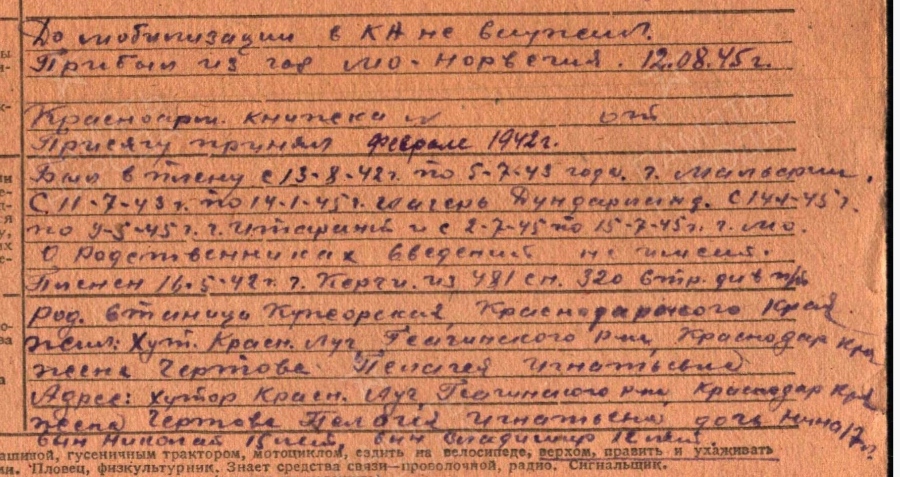 До мобилизации в КА не служил.
Прибыл из гор Мо-Норвегия. 12.08.45г.
Красноарм. книжка № от
Присягу принял феврале 1942г.
Был в плену с 13-8-42г. по 5-7-43 года. г.
С 11-7-43г. по 14-1-45г. лагерь С 14-1-45г.
по 9-5-45г. г. и с 2-7-45 по 15-7-45г. г. Мо.
О Родственниках введений не имеет.
Пленен 16-5-42г. г. Керчи. из 481 сп. 320 стр. див
Род. встаница Кужорская, Краснодарского Края
жил: Хут. Красн. Луч, Геагинского р-на, Краснодар Края
жена Чертова Пелагея Игнатьевна
Адрес: хутор Красн. Луч, Геагинского р-на, Краснодар Края
жена Чертова Пелагея Игнатьевна, дочь Нина 17 л.
сын Николай 15 лет, сын Владимир 12 лет.
ашиной, гусеничным трактором, мотоциклом, ездить на велосипеде, верхом, править и ухаживать
ии. Пловец, физкультурник. Знает средства связи—проволочной, радио. Сигнальщик.